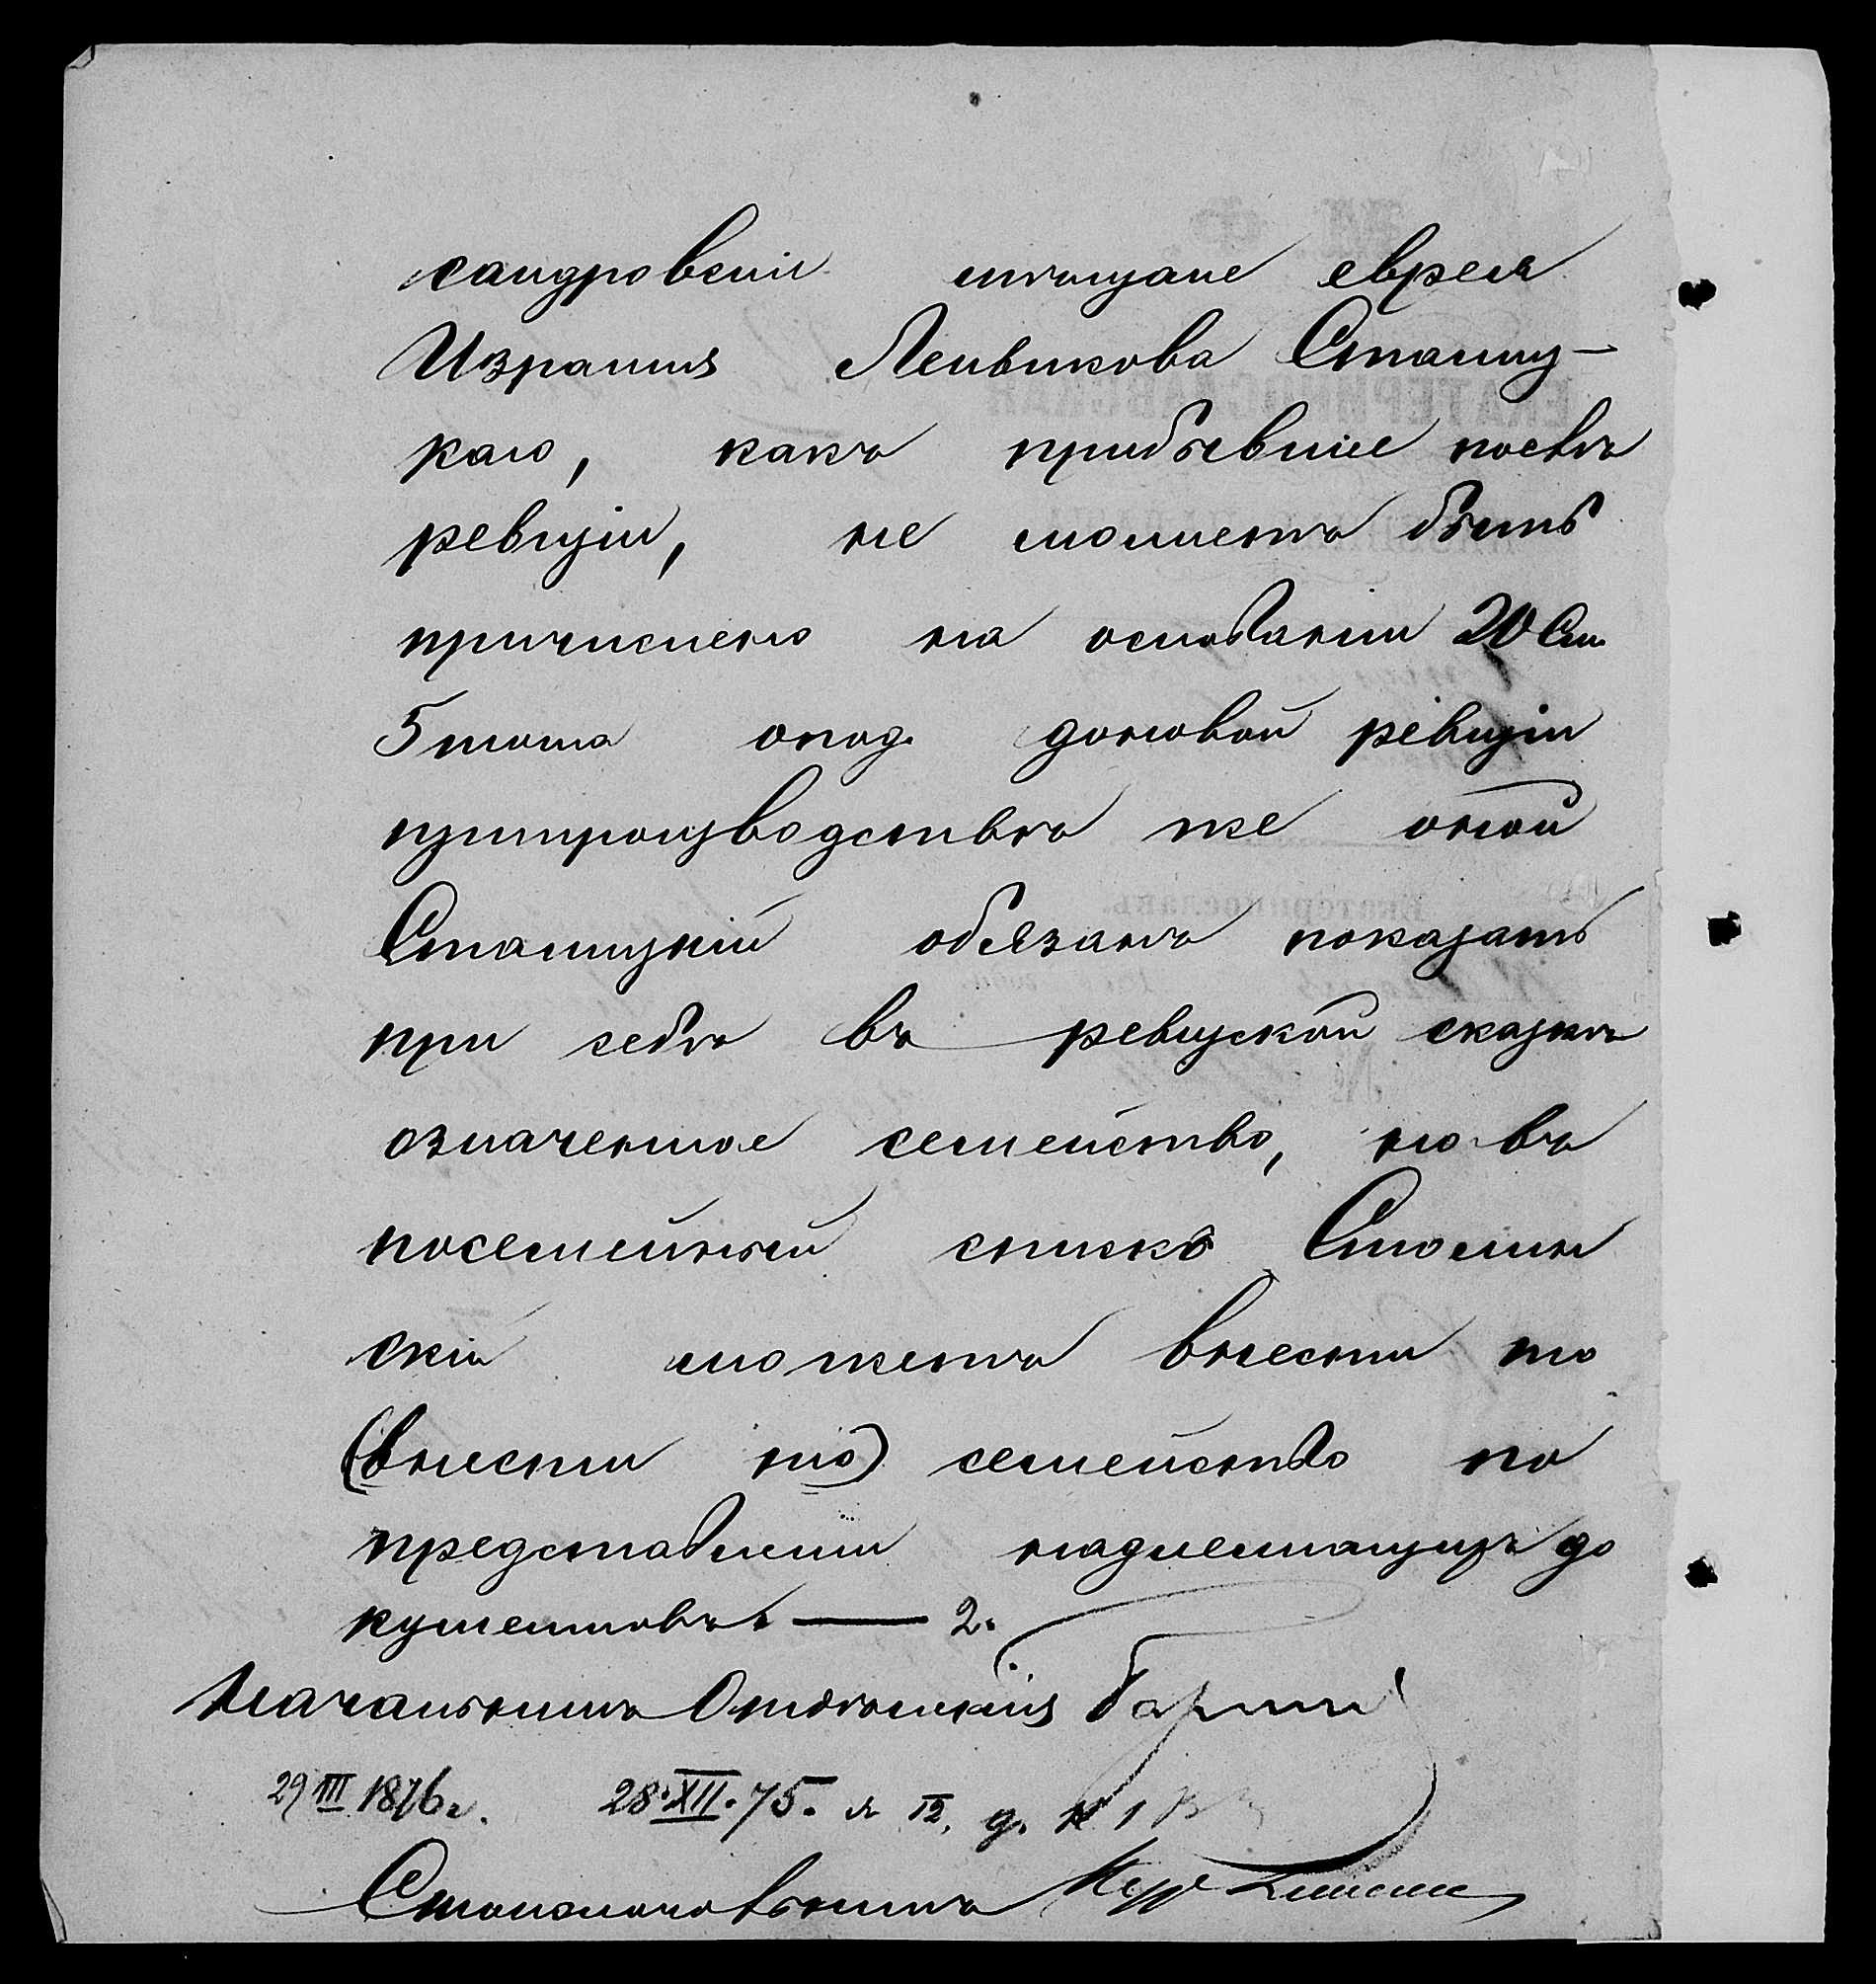 сандровскій мѣщане еврея
Израиля Лейвикова Сталиц-
каго, какъ прибывшіе послѣ
ревизіи, не можетъ быть
причислено на основаніи 20 Ст.
5 тома о под. до новой ревизіи
при производствѣ же оной
Сталицкій обязанъ показать
при себѣ въ ревизской сказкѣ
означенное семейство, но въ
посемейный списокъ Столин
скій можетъ внести то
(внести то) семейство по
представленіи надлежащихъ до
кументовъ. — 2.
Начальникъ Отдѣленія
29 III 1876 г. 28.XII.75.
Столоначальникъ